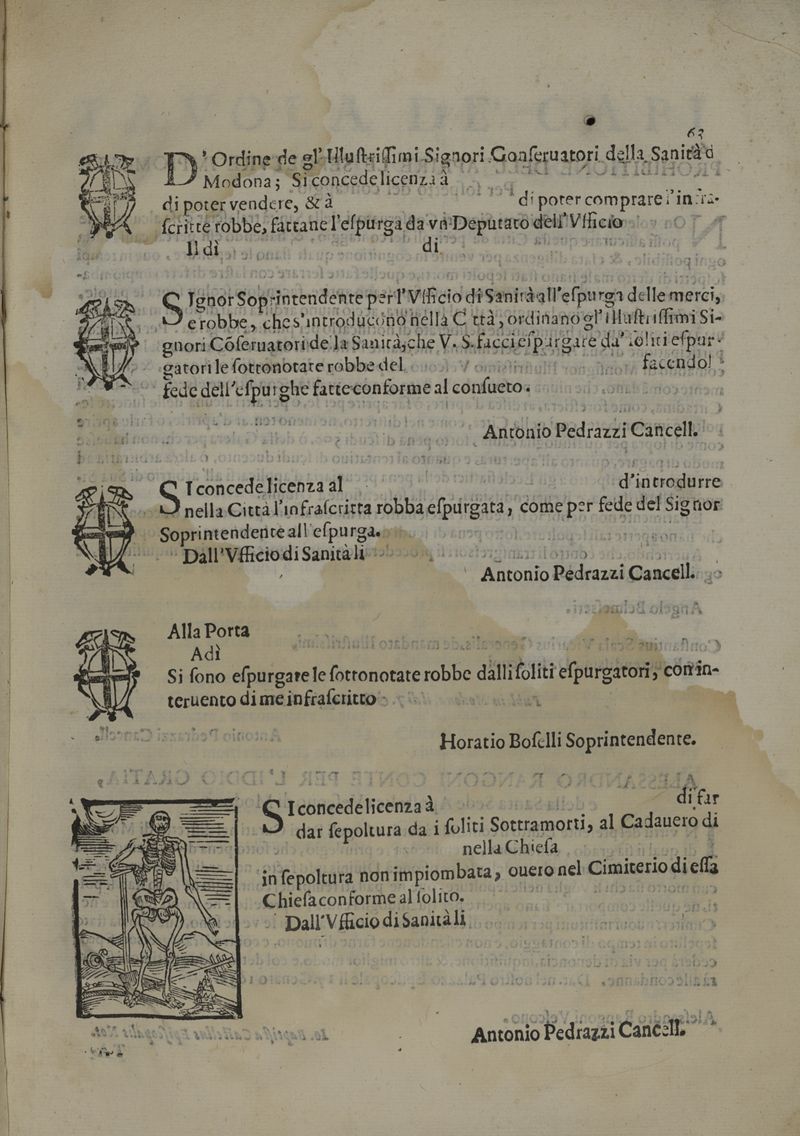 63
D'Ordine de gl'Illustrissimi Signori Conseruatori della Sanità d
Modona; Si concede licenza à
di poter vendere, & à di poter comprare l'infra-
scritte robbe, fattane l'espurga da vn Deputato dell'Vfficio
Il dì di
SIgnor Soprintendente per l'Vfficio di Sanità all'espurga delle merci,
e robbe, che s'introducono nella Cttà, ordinano gl'illustrissimi Si-
gnori Cõseruatori de la Sanità, che V. S. facci espurgare da' soliti espur-
gatori le sottonotate robbe del facendo
fede dell'espurghe fatte conforme al consueto.
Antonio Pedrazzi Cancell.
SI concede licenza al d'introdurre
nella Città l'infrascritta robba espurgata, come per fede del Signor
Soprintendente all'espurga.
Dall'Vfficio di Sanità li
Antonio Pedrazzi Cancell.
Alla Porta
Adì
Si sono espurgate le sottonotate robbe dalli soliti espurgatori, con in-
teruento di me infrascritto
Horatio Boselli Soprintendente.
SI concede licenza à di far
dar sepoltura da i soliti Sottramorti, al Cadauero di
nella Chiesa
in sepoltura non impiombata, ouero nel Cimiterio di essa
Chiesa conforme al solito.
Dall'Vfficio di Sanità li
Antonio Pedrazzi Cancell.